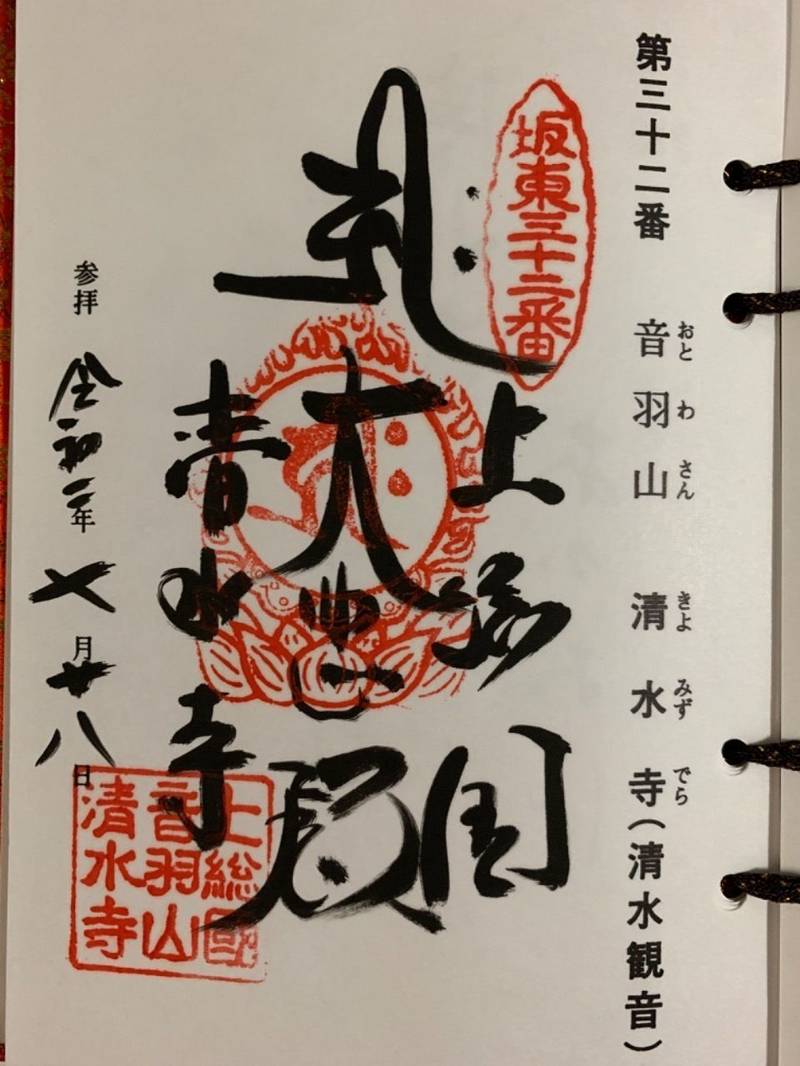 第三十二番 音羽山 清水寺(清水観音)
おとわさん きよみずでら
坂東三十二番
上総国
大悲殿
清水寺
上総國
音羽山
清水寺
参拝 令和二年七月廿八日